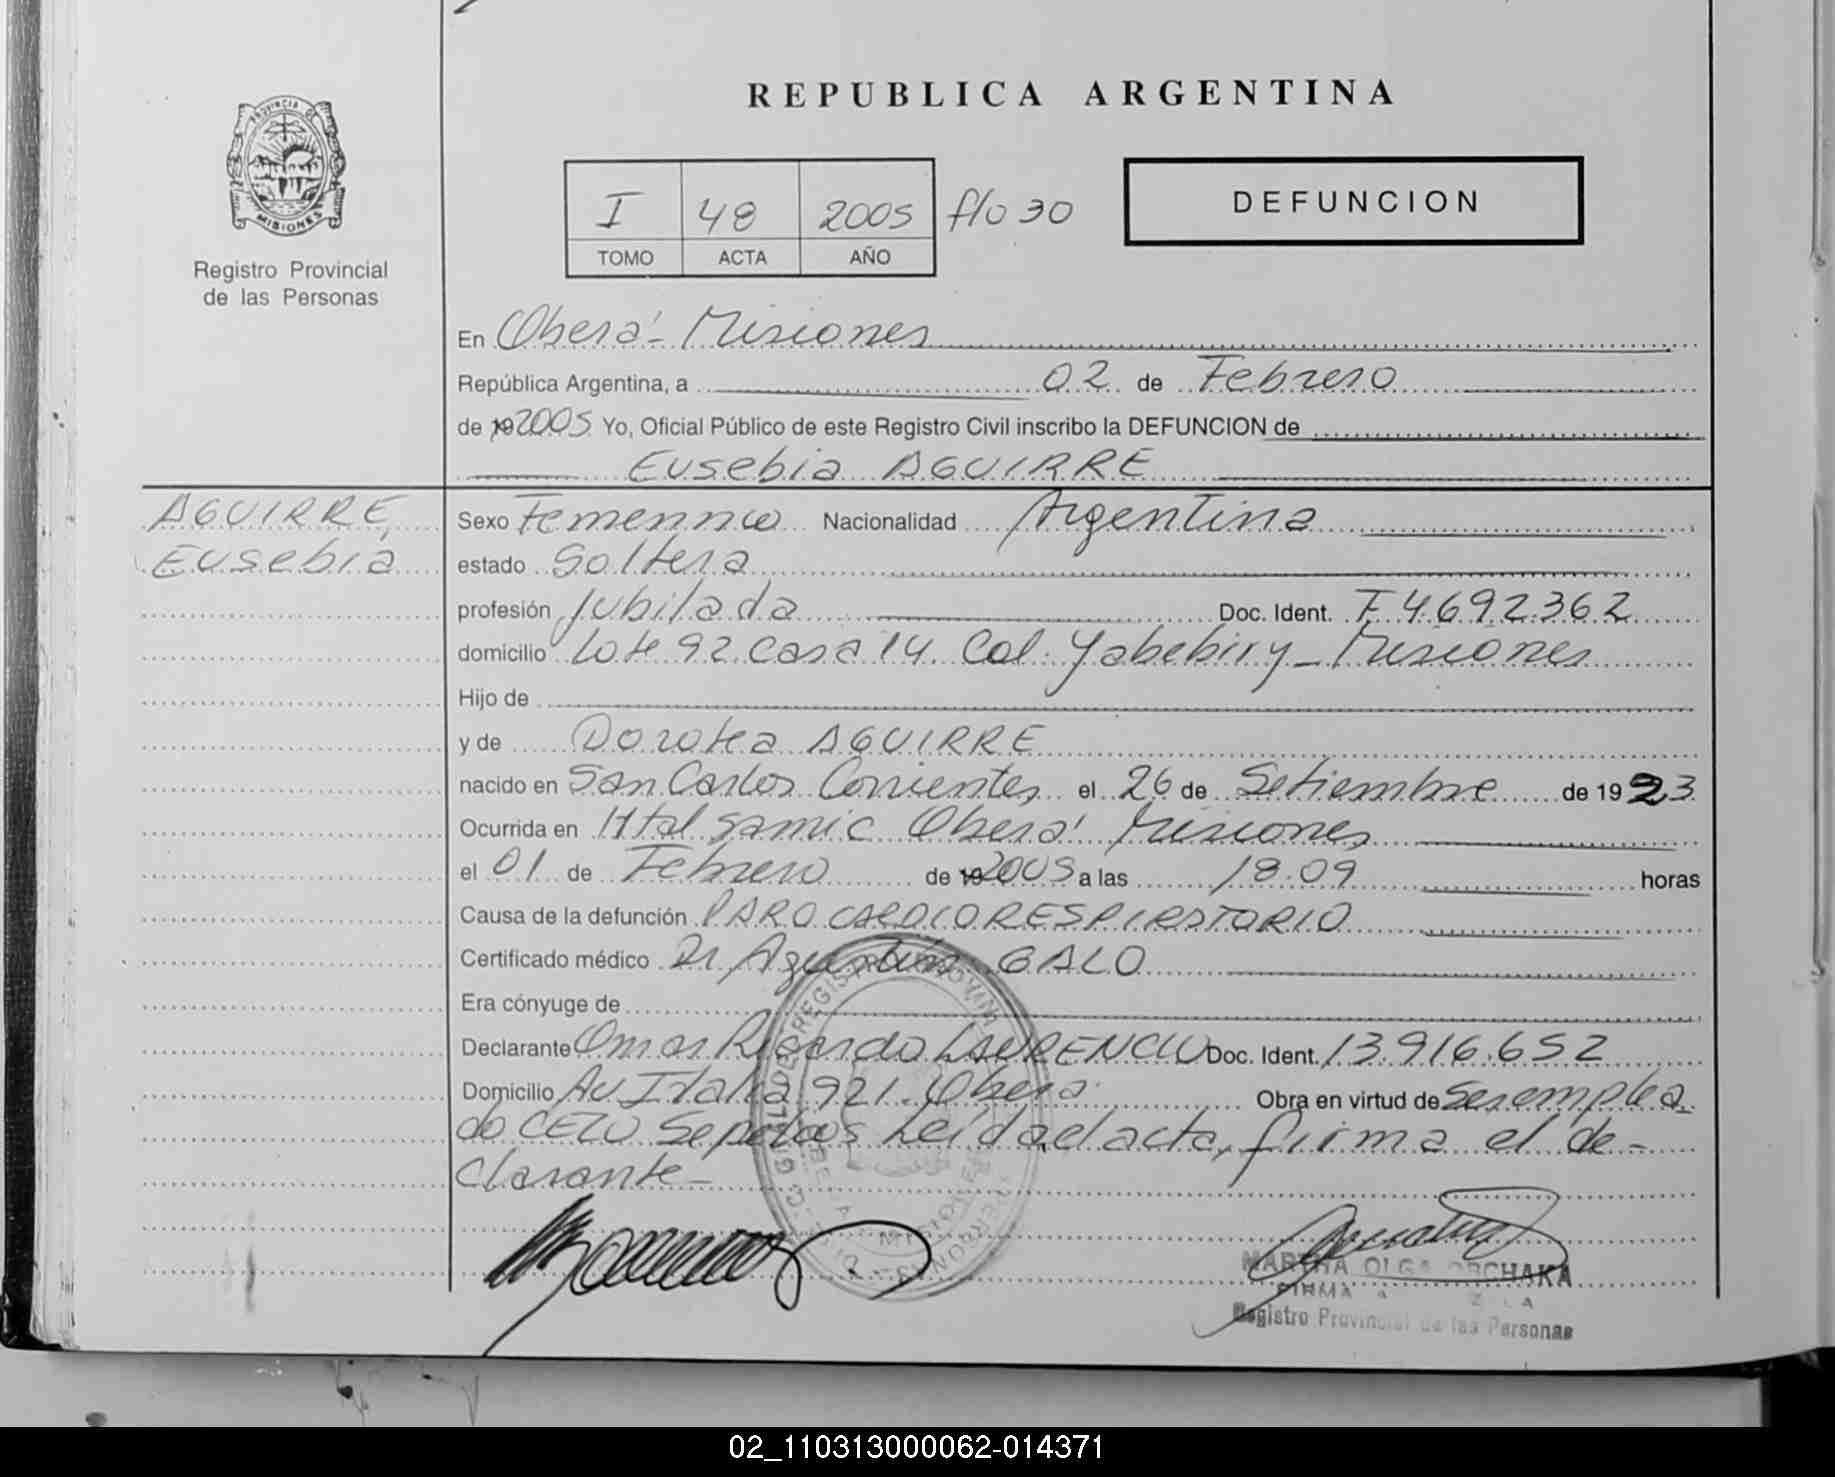 REPUBLICA ARGENTINA
PROVINCIA DE
MISIONES
Registro Provincial
de las Personas
I 48 2005 f/o 30
TOMO ACTA AÑO
DEFUNCION
En Oberá - Misiones
República Argentina, a 02 de Febrero
de 19 2005 Yo, Oficial Público de este Registro Civil inscribo la DEFUNCION de
Eusebia AGUIRRE
AGUIRRE
Eusebia
Sexo Femenino Nacionalidad Argentina
estado Soltera
profesión Jubilada Doc. Ident. F 4.692.362
domicilio Lote 92 Casa 14 Col. Yabebiry - Misiones
Hijo de
y de Dorotea AGUIRRE
nacido en San Carlos Corrientes el 26 de Setiembre de 1923
Ocurrida en Htal Samic Oberá Misiones
el 01 de Febrero de 19 2005 a las 18.09 horas
Causa de la defunción PARO CARDIORESPIRATORIO
Certificado médico Dr Agustín GALO
Era cónyuge de
Declarante Omar Ricardo LAURENCIO Doc. Ident. 13.916.652
Domicilio Av Italia 921. Oberá Obra en virtud de Ser emplea
do Sepelios Leída el acta, firma el de-
clarante -
MARTHA OLGA
FIRMA
Registro Provincial de las Personas
02_110313000062-014371